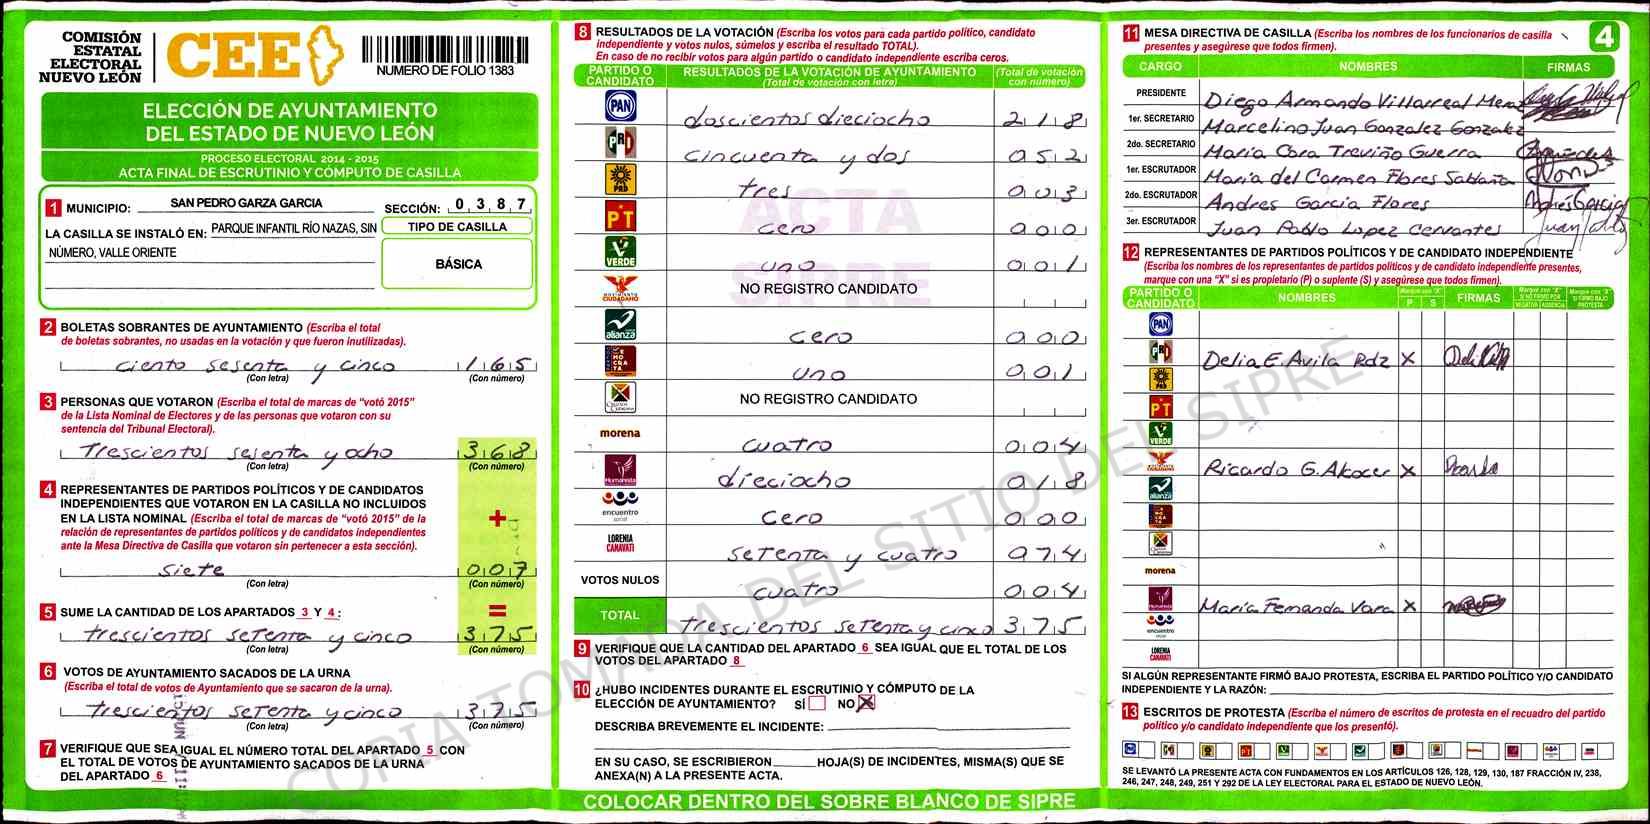 COMISIÓN
ESTATAL
ELECTORAL
NUEVO LEÓN
CEE
NUMERO DE FOLIO 1383
ELECCIÓN DE AYUNTAMIENTO
DEL ESTADO DE NUEVO LEÓN
PROCESO ELECTORAL 2014 - 2015
ACTA FINAL DE ESCRUTINIO Y CÓMPUTO DE CASILLA
1 MUNICIPIO: SAN PEDRO GARZA GARCIA SECCIÓN: 0 3 8 7
LA CASILLA SE INSTALÓ EN: PARQUE INFANTIL RÍO NAZAS, SIN
NÚMERO, VALLE ORIENTE
TIPO DE CASILLA
BÁSICA
2 BOLETAS SOBRANTES DE AYUNTAMIENTO (Escriba el total
de boletas sobrantes, no usadas en la votación y que fueron inutilizadas).
ciento sesenta y cinco 1 6 5
(Con letra) (Con número)
3 PERSONAS QUE VOTARON (Escriba el total de marcas de "votó 2015"
de la Lista Nominal de Electores y de las personas que votaron con su
sentencia del Tribunal Electoral).
Trescientos sesenta y ocho 3 6 8
(Con letra) (Con número)
4 REPRESENTANTES DE PARTIDOS POLÍTICOS Y DE CANDIDATOS
INDEPENDIENTES QUE VOTARON EN LA CASILLA NO INCLUIDOS
EN LA LISTA NOMINAL (Escriba el total de marcas de "votó 2015" de la
relación de representantes de partidos políticos y de candidatos independientes
ante la Mesa Directiva de Casilla que votaron sin pertenecer a esta sección).
+
siete 0 0 7
(Con letra) (Con número)
5 SUME LA CANTIDAD DE LOS APARTADOS 3 Y 4:
=
trescientos setenta y cinco 3 7 5
(Con letra) (Con número)
6 VOTOS DE AYUNTAMIENTO SACADOS DE LA URNA
(Escriba el total de votos de Ayuntamiento que se sacaron de la urna).
trescientos setenta y cinco 3 7 5
(Con letra) (Con número)
7 VERIFIQUE QUE SEA IGUAL EL NÚMERO TOTAL DEL APARTADO 5 CON
EL TOTAL DE VOTOS DE AYUNTAMIENTO SACADOS DE LA URNA
DEL APARTADO 6
8 RESULTADOS DE LA VOTACIÓN (Escriba los votos para cada partido político, candidato
independiente y votos nulos, súmelos y escriba el resultado TOTAL).
En caso de no recibir votos para algún partido o candidato independiente escriba ceros.
PARTIDO O CANDIDATO RESULTADOS DE LA VOTACIÓN DE AYUNTAMIENTO (Total de votación con letra) (Total de votación con número)
PAN doscientos dieciocho 2 1 8
PRD cincuenta y dos 0 5 2
PRD tres 0 0 3
PT cero 0 0 0
VERDE uno 0 0 1
MOVIMIENTO CIUDADANO NO REGISTRO CANDIDATO
alianza cero 0 0 0
DEMOCRATA uno 0 0 1
NO REGISTRO CANDIDATO
morena cuatro 0 0 4
Humanista dieciocho 0 1 8
encuentro social cero 0 0 0
LORENIA CANAVATI setenta y cuatro 0 7 4
VOTOS NULOS cuatro 0 0 4
TOTAL trescientos setenta y cinco 3 7 5
ACTA
SIPRE
9 VERIFIQUE QUE LA CANTIDAD DEL APARTADO 6 SEA IGUAL QUE EL TOTAL DE LOS
VOTOS DEL APARTADO 8
10 ¿HUBO INCIDENTES DURANTE EL ESCRUTINIO Y CÓMPUTO DE LA
ELECCIÓN DE AYUNTAMIENTO? SÍ NO X
DESCRIBA BREVEMENTE EL INCIDENTE:
EN SU CASO, SE ESCRIBIERON HOJA(S) DE INCIDENTES, MISMA(S) QUE SE
ANEXA(N) A LA PRESENTE ACTA.
COLOCAR DENTRO DEL SOBRE BLANCO DE SIPRE
11 MESA DIRECTIVA DE CASILLA (Escriba los nombres de los funcionarios de casilla
presentes y asegúrese que todos firmen).
4
CARGO NOMBRES FIRMAS
PRESIDENTE Diego Armando Villarreal
1er. SECRETARIO Marcelino Juan Gonzalez Gonzalez
2do. SECRETARIO Maria Cora Treviño Guerra
1er. ESCRUTADOR Maria del Carmen Flores Saldaña
2do. ESCRUTADOR Andres Garcia Flores Andres Garcia
3er. ESCRUTADOR Juan Pablo Lopez Cervantes Juan Pablo
12 REPRESENTANTES DE PARTIDOS POLÍTICOS Y DE CANDIDATO INDEPENDIENTE
(Escriba los nombres de los representantes de partidos políticos y de candidato independiente presentes,
marque con una "X" si es propietario (P) o suplente (S) y asegúrese que todos firmen).
PARTIDO O CANDIDATO NOMBRES Marque con "X" P S FIRMAS Marque con "X" SI NO FIRMO POR NEGATIVA AUSENCIA Marque con "X" SI FIRMO BAJO PROTESTA
PAN
PRD Delia E. Avila Rdz X
PRD
PT
VERDE
Ricardo G. Alcocer X
alianza
morena
Humanista Maria Fernanda Vara X
encuentro social
LORENIA CANAVATI
SI ALGÚN REPRESENTANTE FIRMÓ BAJO PROTESTA, ESCRIBA EL PARTIDO POLÍTICO Y/O CANDIDATO
INDEPENDIENTE Y LA RAZÓN:
13 ESCRITOS DE PROTESTA (Escriba el número de escritos de protesta en el recuadro del partido
político y/o candidato independiente que los presentó).
SE LEVANTÓ LA PRESENTE ACTA CON FUNDAMENTOS EN LOS ARTÍCULOS 126, 128, 129, 130, 187 FRACCIÓN IV, 238,
246, 247, 248, 249, 251 Y 292 DE LA LEY ELECTORAL PARA EL ESTADO DE NUEVO LEÓN.
COPIA TOMADA DEL SITIO DEL SIPRE